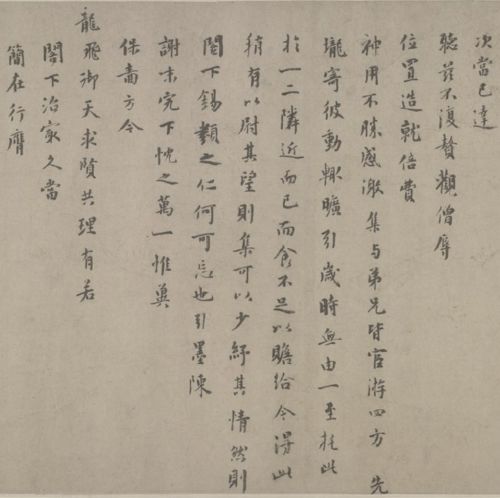 次當已達
聽茲不復贅觀僧辱
位置造就倍費
神用不勝感激集与弟兄皆官游四方先
壠寄彼動輙曠引歲時無由一至托此
於一二隣近而已而食不足以贍給今得此
稍有以尉其望則集可以少紓其情然則
閤下錫類之仁何可忘也引墨陳
謝未究下忱之萬一惟冀
保嗇方今
龍飛御天求賢共理有若
閤下治家久當
簡在行膺